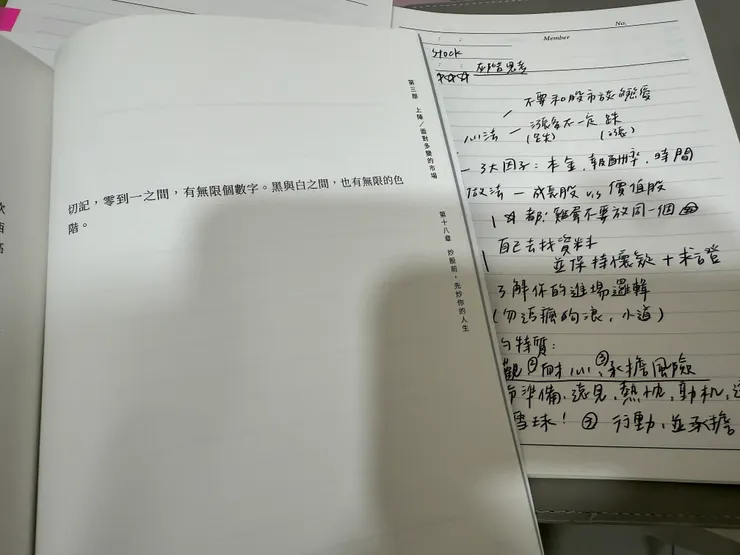 切記，零到一之間，有無限個數字。黑與白之間，也有無限的色
階。
第三部 上陣／面對多變的市場
第十八章 炒股前，先炒你的人生
No.
Member
Stock
不要和股市談戀愛
心法 — 漲多不一定跌
(跌) (漲)
一 3大因子：本金，報酬率，時間
做法 — 成長股 vs 價值股
雞蛋不要放同一個
自己去找資料
並保持懷疑＋求證
了解你的進場邏輯
(勿 瘋狗浪，小道)
特質：
觀 ② 耐心 ③ 承擔風險
準備，遠見，熱忱，動机，
雪球！ ② 行動，並承擔